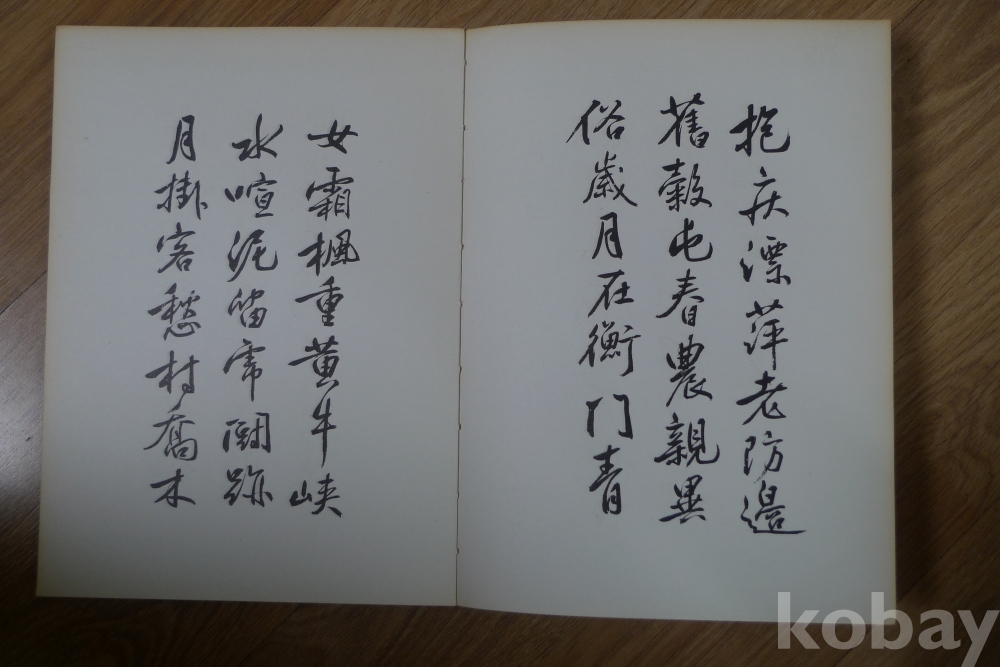 抱疾漂萍老防邊
舊穀屯春農親異
俗歲月在衡門青
女霜楓重黃牛峽
水喧泥留虎鬪跡
月掛客愁村喬木
kobay